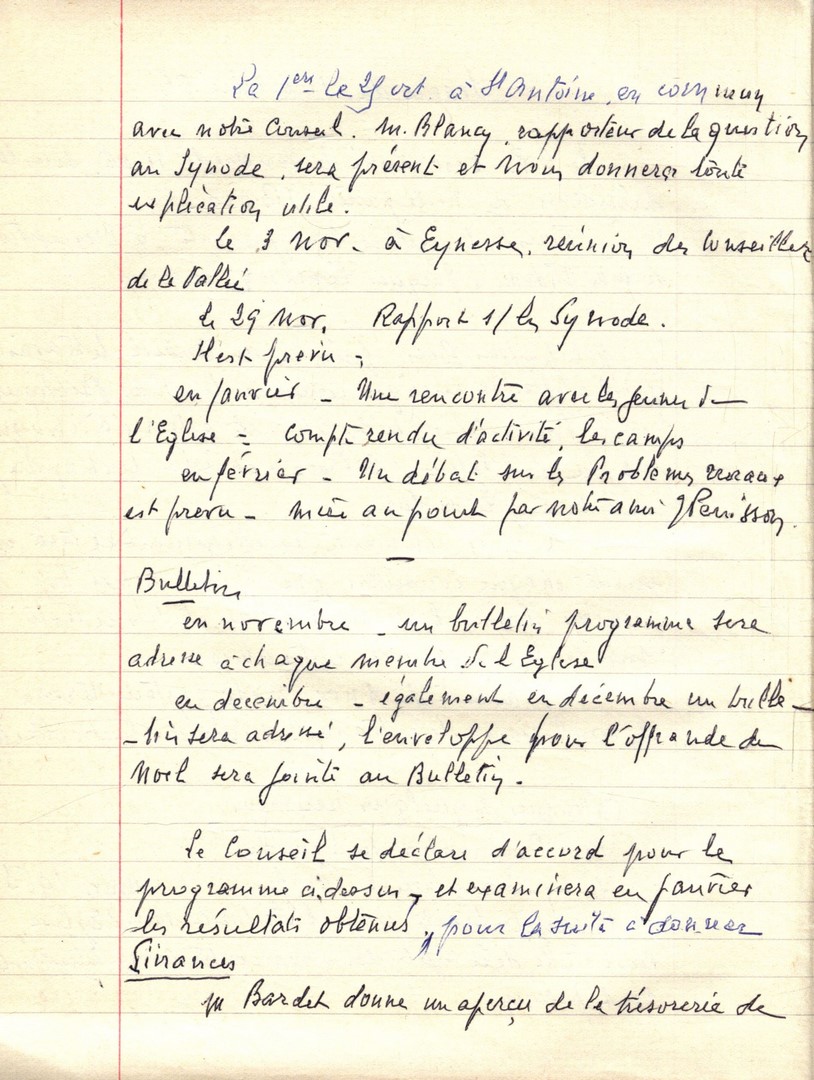 La 1ere le 25 oct. à St Antoine, en commun
avec notre Conseil. M. Blancy, rapporteur de la question
au Synode, sera présent et nous donnera toute
explication utile.
le 3 Nov. à Eynesse, réunion des Conseillers
de la Vallée
le 29 Nov. Rapport s/ les Synode.
Il est prévu :
en janvier - Une rencontre avec les jeunes de
l'Eglise = compte rendu d'activité, les camps
en février - Un débat sur les Problèmes
est prévu - mise au point par notre ami J Penisson.
Bulletin
en novembre - un bulletin programme sera
adressé à chaque membre de l'Eglise
en decembre - également en décembre un bulle-
-tin sera adressé, l'enveloppe pour l'offrande de
Noël sera jointe au Bulletin.
Le Conseil se déclare d'accord pour le
programme ci.dessus, et examinera en janvier
les résultats obtenus, pour la suite à donner
Finances
M Bardet donne un aperçu de la trésorerie de